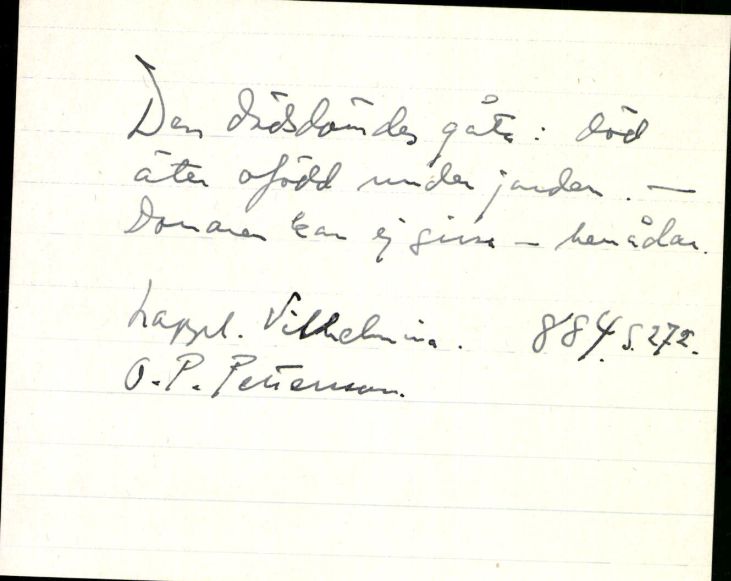 Den dödsdömdes gåta: död
äter ofödd under jorden. —
Domaren kan ej gissa — benådar.
Lappl. Vilhelmina. 884. S. 272.
O. P. Pettersson.